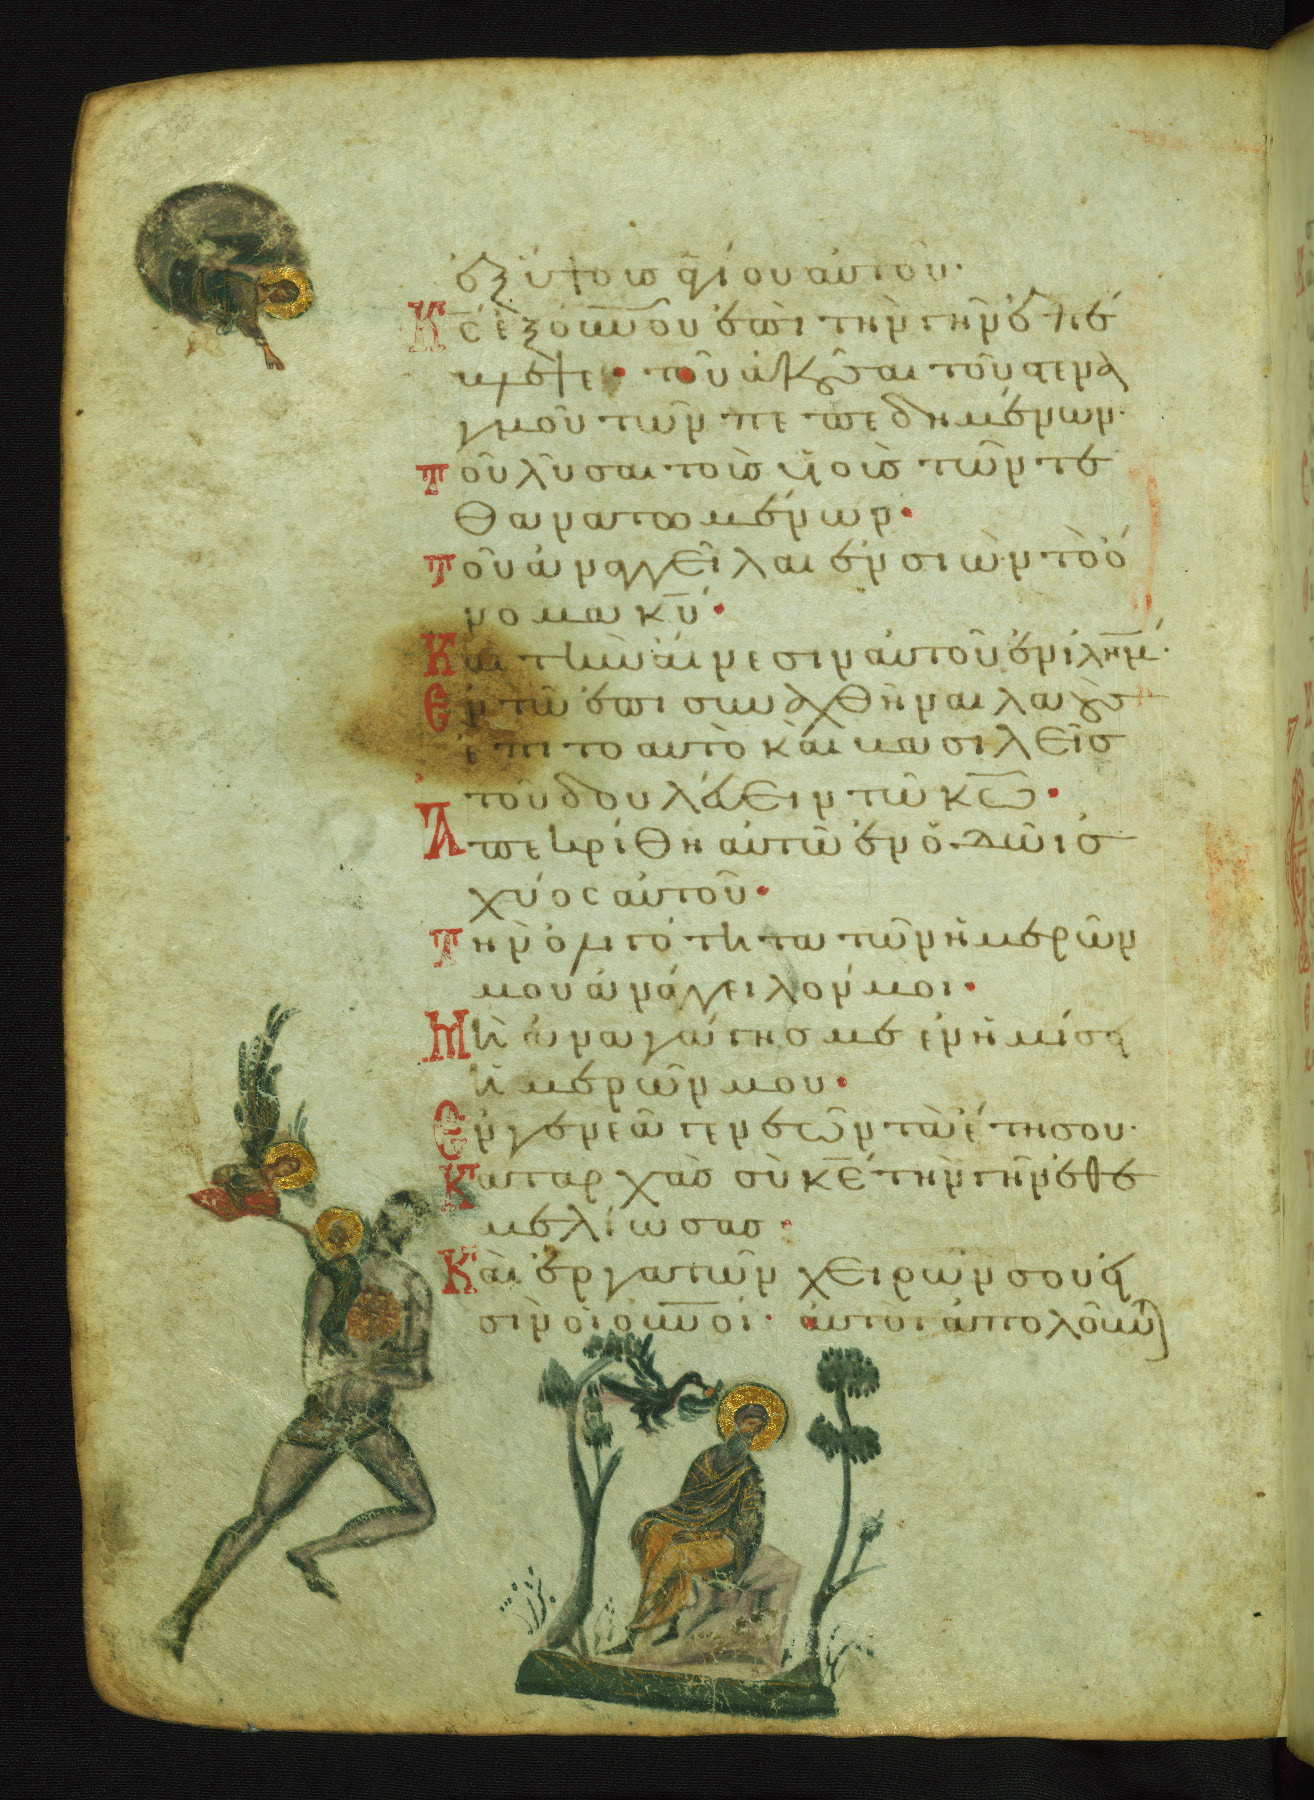 ἐξ ὕψους ἁγίου αὐτοῦ·
Κ̅ς̅ ἐξ ο̅υ̅ν̅ο̅υ̅ ἐπὶ τὴν γῆν ἐπέ
βλεψε· τοῦ ἀκοῦσαι τοῦ στενα
γμοῦ τῶν πεπεδημένων·
τοῦ λῦσαι τοὺς υἱοὺς τῶν τε
θανατωμένων·
τοῦ ἀναγγεῖλαι ἐν σιὼν τὸ ὄ
νομα κ̅υ̅·
Καὶ τὴν αἴνεσιν αὐτοῦ ἐν ἰ̅λ̅η̅μ̅·
Ἐν τῷ ἐπισυναχθῆναι λαοὺς
ἐπιτοαυτὸ καὶ βασιλεῖς
τοῦ δουλεύειν τῷ κ̅ω̅·
Ἀπεκρίθη αὐτῷ ἐν ὁδῷ ἰσ
χύος αὐτοῦ·
Τὴν ὀλιγότητα τῶν ἡμερῶν
μου ἀνάγγειλόν μοι·
Μὴ ἀναγάγῃς με ἐν ἡμίσει
ἡμερῶν μου·
Ἐν γενεᾷ γενεῶν τὰ ἔτη σου·
Καταρχὰς σὺ κ̅ε̅ τὴν γῆν ἐθε
μελίωσας·
Καὶ ἔργα τῶν χειρῶν σού εἰ
σιν οἱ ο̅υ̅ν̅ο̅ί̅· αὐτοὶ ἀπολοῦνται